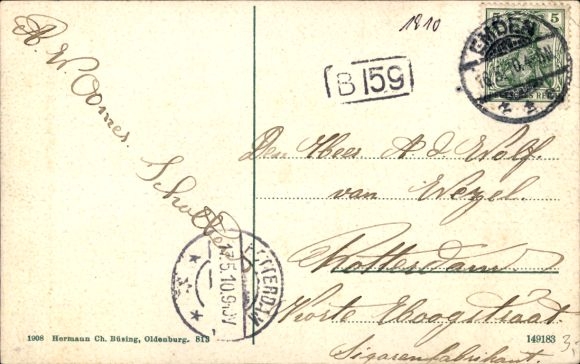 1810
5
EMDEN
B 159
A. W. Oomes.
Den Heer A d Wolf.
van Wezel.
Rotterdam.
Korte Hoogstraat
Sigarenfabrikant.
ROTTERDAM
17.5.10.9-
1908 Hermann Ch. Büsing, Oldenburg. 813
149183
3